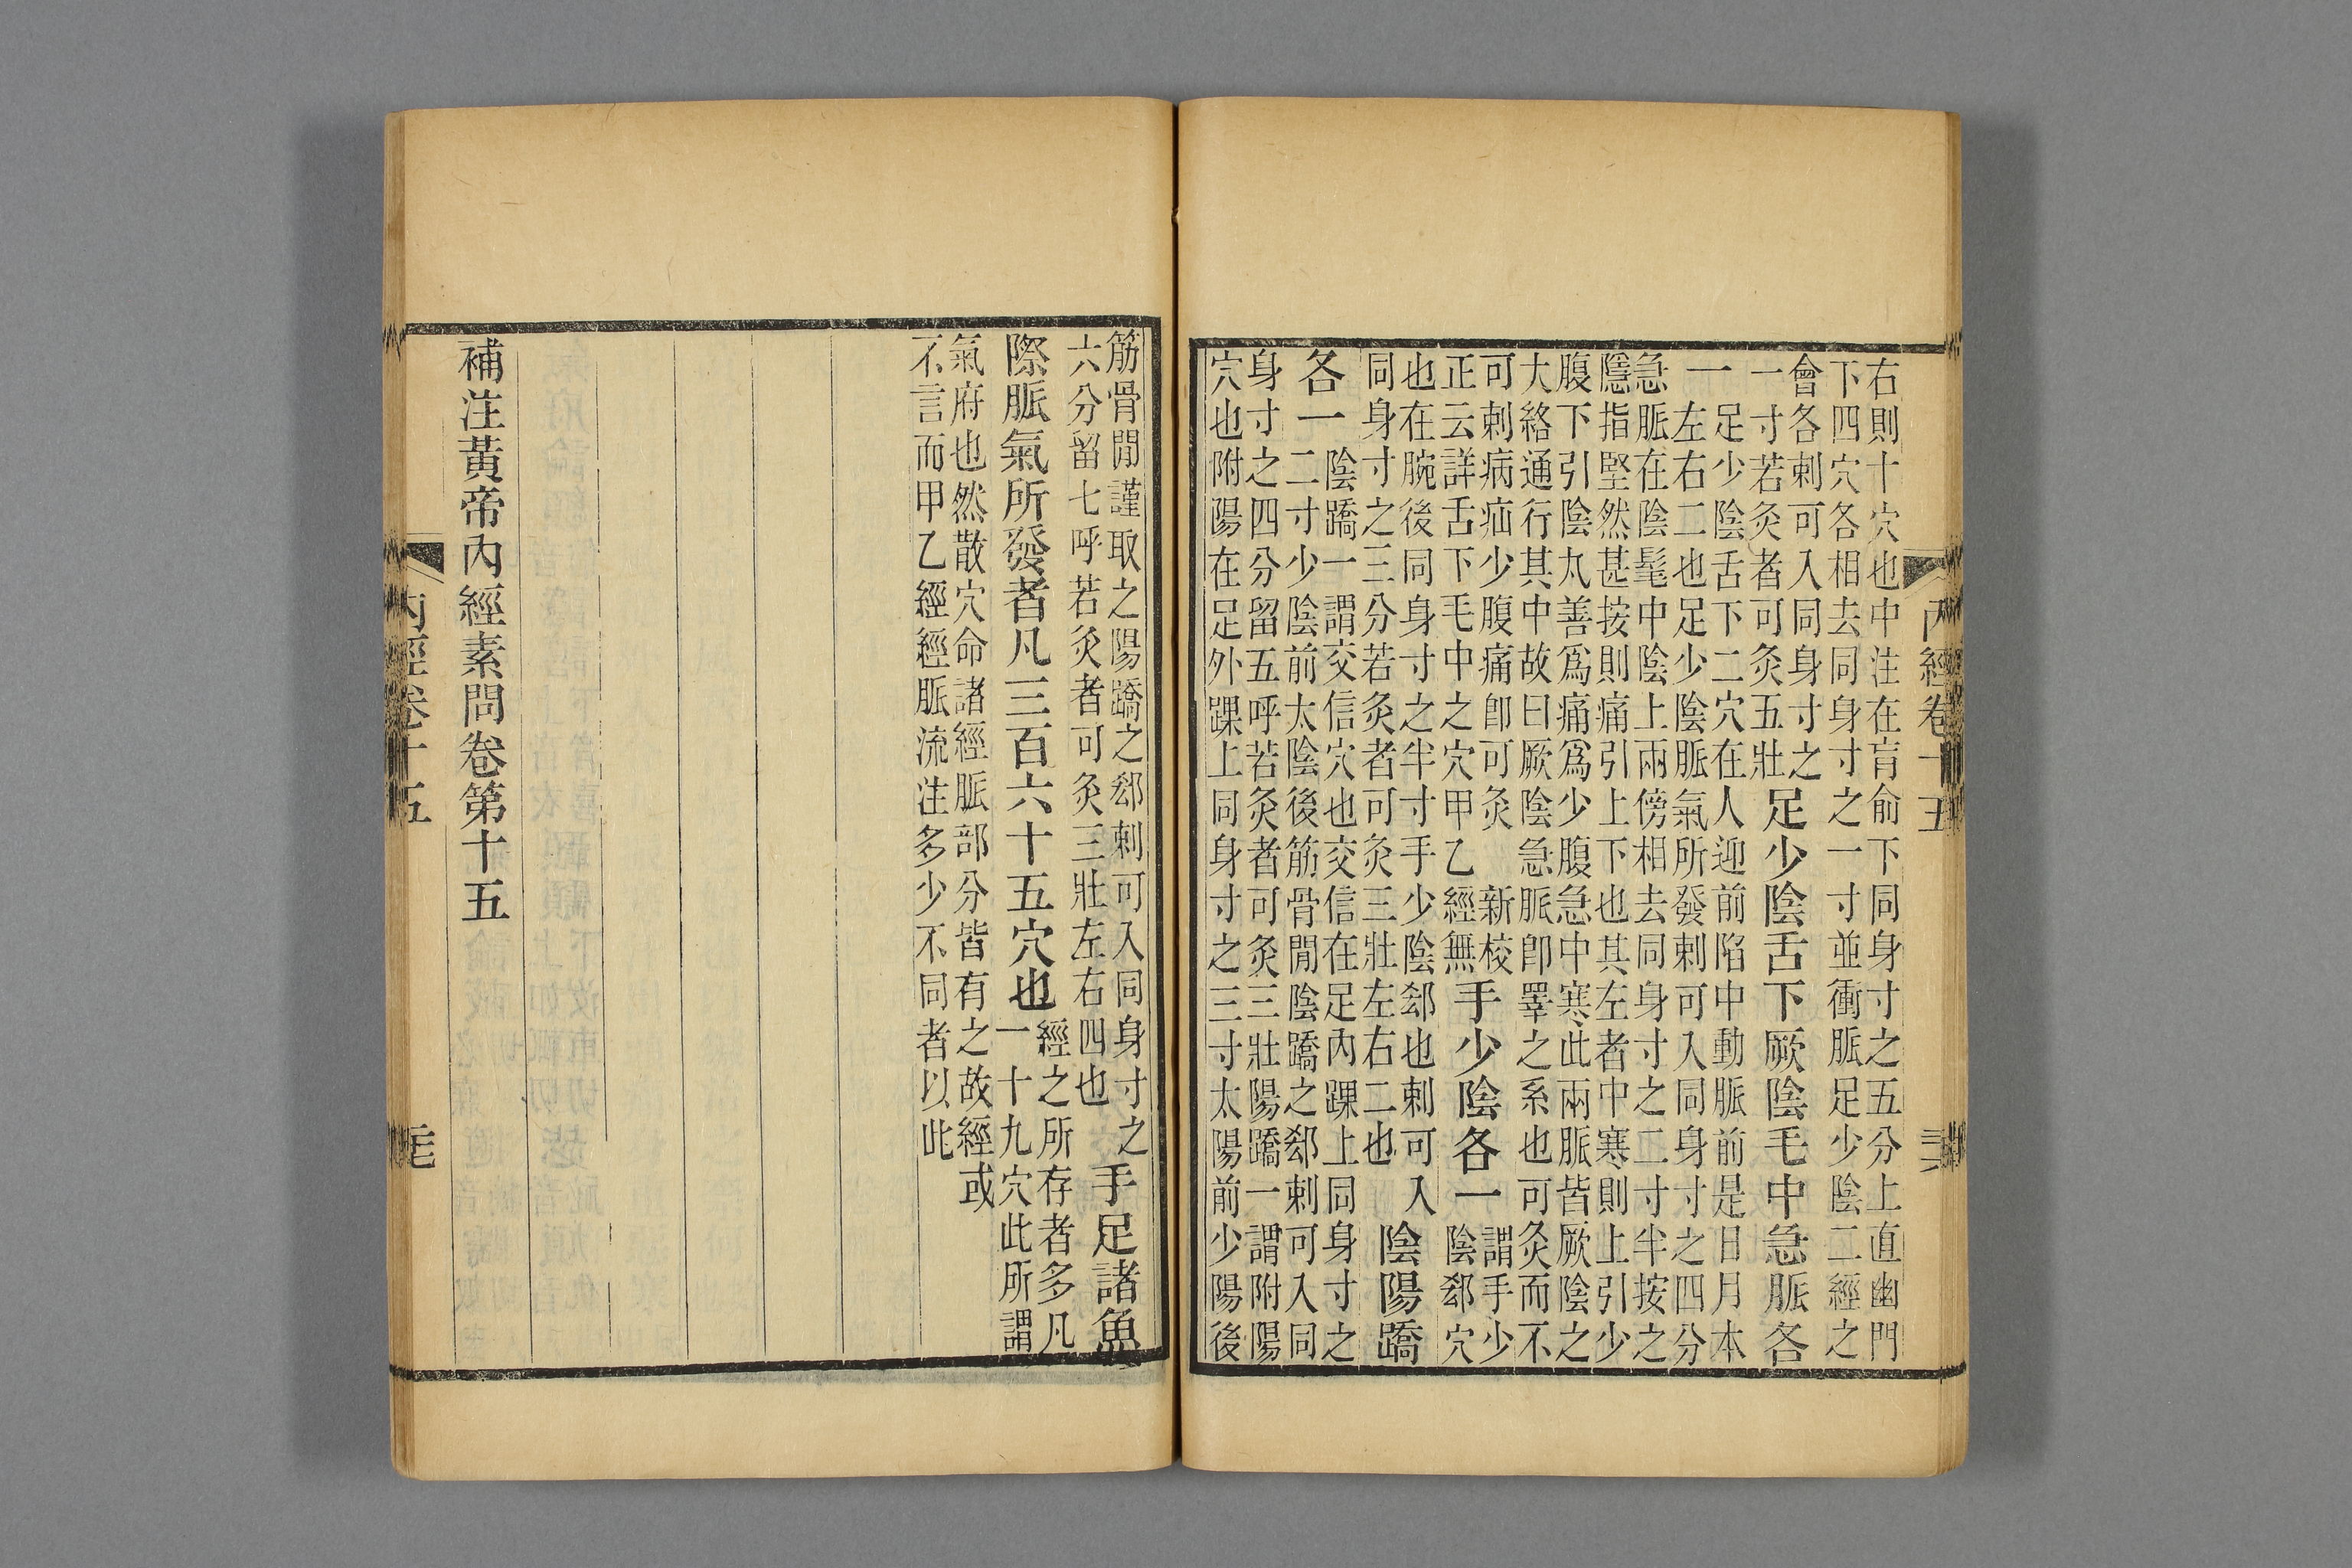 內經卷十五
右則十穴也中注在肓俞下同身寸之五分上直幽門
下四穴各相去同身寸之一寸並衝脈足少陰二經之
會各刺可入同身寸之
一寸若灸者可灸五壯
足少陰舌下厥陰毛中急脈各
一
足少陰舌下二穴在人迎前陷中動脈前是日月本
左右二也足少陰脈氣所發刺可入同身寸之四分
急脈在陰髦中陰上兩傍相去同身寸之二寸半按之
隱指堅然甚按則痛引上下也其左者中寒則上引少
腹下引陰丸善爲痛爲少腹急中寒此兩脈皆厥陰之
大絡通行其中故曰厥陰急脈卽睪之系也可灸而不
可刺病疝少腹痛卽可灸 新校
正云詳舌下毛中之穴甲乙經無
手少陰各一
謂手少
陰郄穴
也在腕後同身寸之半寸手少陰郄也刺可入
同身寸之三分若灸者可灸三壯左右二也
陰陽蹻
各一
陰蹻一謂交信穴也交信在足內踝上同身寸之
二寸少陰前太陰後筋骨閒陰蹻之郄刺可入同
身寸之四分留五呼若灸者可灸三壯陽蹻一謂附陽
穴也附陽在足外踝上同身寸之三寸太陽前少陽後
筋骨閒謹取之陽蹻之郄刺可入同身寸之
六分留七呼若灸者可灸三壯左右四也
手足諸魚
際脈氣所發者凡三百六十五穴也
經之所存者多凡
一十九穴此所謂
氣府也然散穴命諸經脈部分皆有之故經或
不言而甲乙經經脈流注多少不同者以此
補注黃帝內經素問卷第十五
內經卷十五